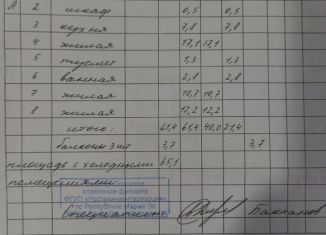 А 2 шкаф 0,5 0,5
3 кухня 7,8 7,8
4 жилая 17,1 17,1
5 туалет 1,3 1,3
6 ванная 2,8 2,8
7 жилая 10,7 10,7
8 жилая 12,2 12,2
итого: 61,4 61,4 40,0 21,4
балконы 3 шт 3,7 3,7
площадь с холодными 65,1
помещениями
отделение филиала
ФГУП «Ростехинвентаризация»
по Республике Марий Эл